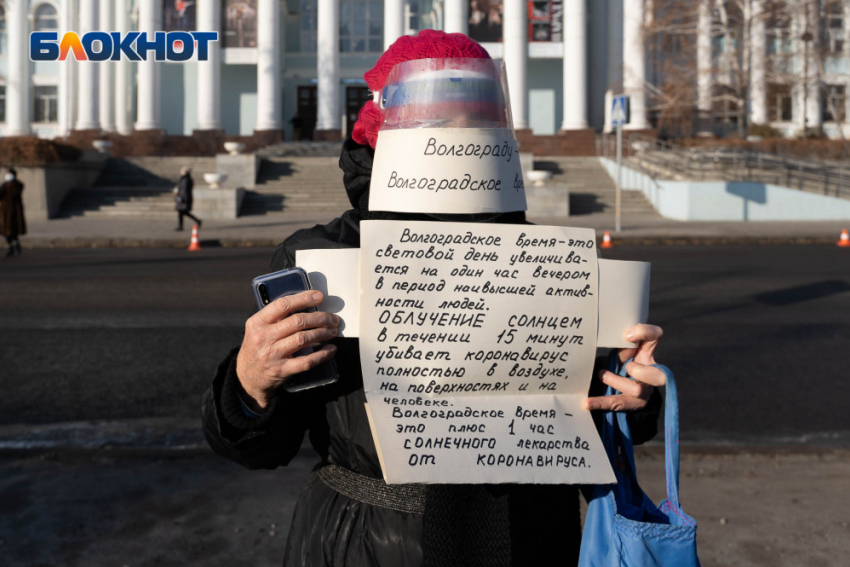 БЛОКНОТ
Волгограду -
Волгоградское время.
Волгоградское время-это
световой день увеличива-
ется на один час вечером
в период наивысшей актив-
ности людей.
ОБЛУЧЕНИЕ солнцем
в течении 15 минут
убивает коронавирус
полностью в воздухе,
на поверхностях и на
человеке.
Волгоградское время -
это плюс 1 час
солнечного лекарства
от КОРОНАВИРУСА.